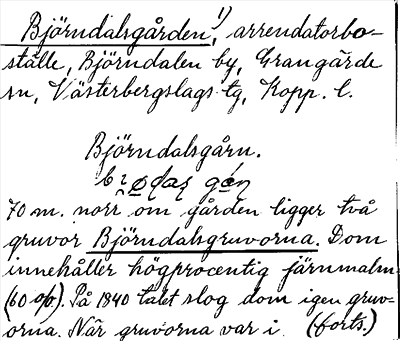 Björndalsgården,¹⁾ arrendatorbo-
ställe, Björndalen by, Grangärde
sn, Västerbergslags tg, Kopp. l.
Björndalsgårn.
70 m. norr om gården ligger två
gruvor Björndalsgruvorna. Dom
innehåller högprocentig järnmalm
(60 %). På 1840 talet slog dom igen gruv-
orna. När gruvorna var i (forts.)